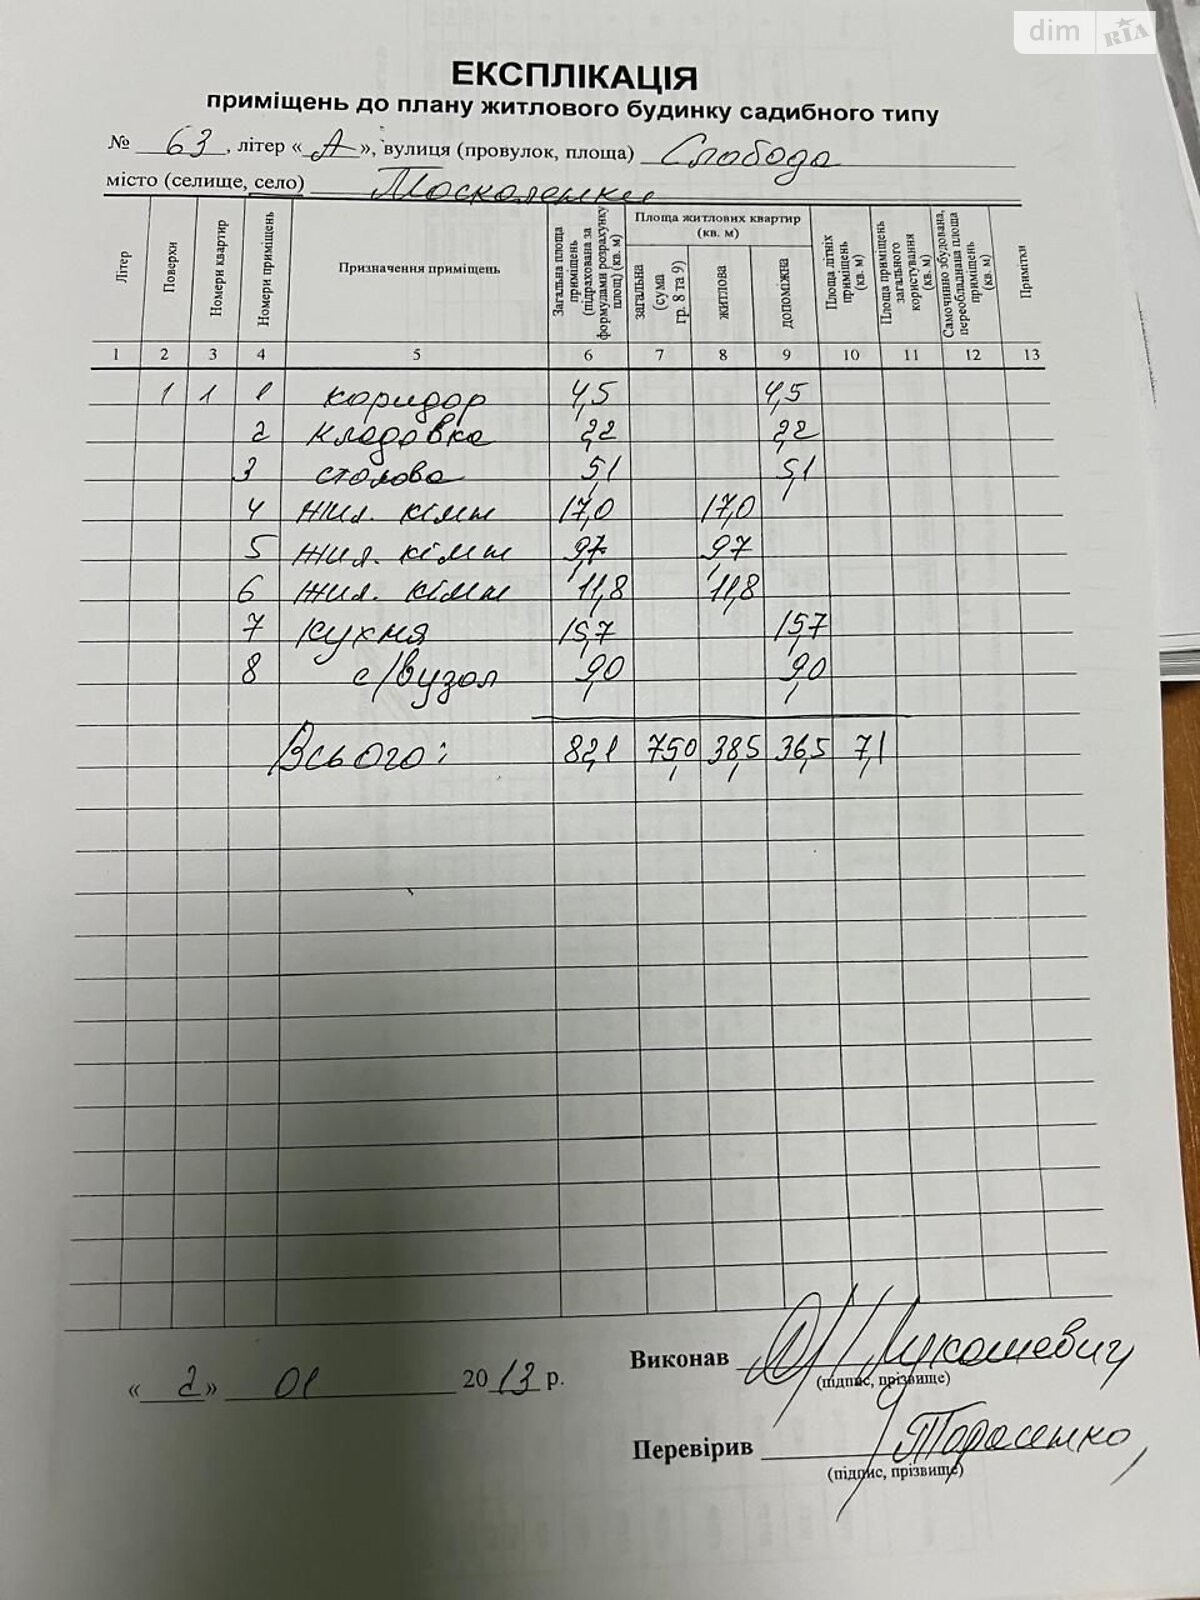 dim RIA
ЕКСПЛІКАЦІЯ
приміщень до плану житлового будинку садибного типу
№ 63, літер «А», вулиця (провулок, площа) Слобода
місто (селище, село) Москаленки
Літер
Поверхи
Номери квартир
Номери приміщень
Призначення приміщень
Загальна площа приміщень (підрахована за формулами розрахунку площ) (кв. м)
Площа житлових квартир (кв. м)
загальна (сума гр. 8 та 9)
житлова
допоміжна
Площа літніх приміщень (кв. м)
Площа приміщень загального користування (кв. м)
Самочинно збудована, переобладнана площа приміщень (кв. м)
Примітки
1 2 3 4 5 6 7 8 9 10 11 12 13
1 1 1 коридор 4,5 4,5
2 кладовка 2,2 2,2
3 столова 5,1 5,1
4 жил. кімн 17,0 17,0
5 жил. кімн 9,7 9,7
6 жил. кімн 11,8 11,8
7 кухня 15,7 15,7
8 с/вузол 9,0 9,0
Всього: 82,1 75,0 38,5 36,5 7,1
« 2 » 01 2013 р.
Виконав Лукашевич
(підпис, прізвище)
Перевірив Тарасенко
(підпис, прізвище)